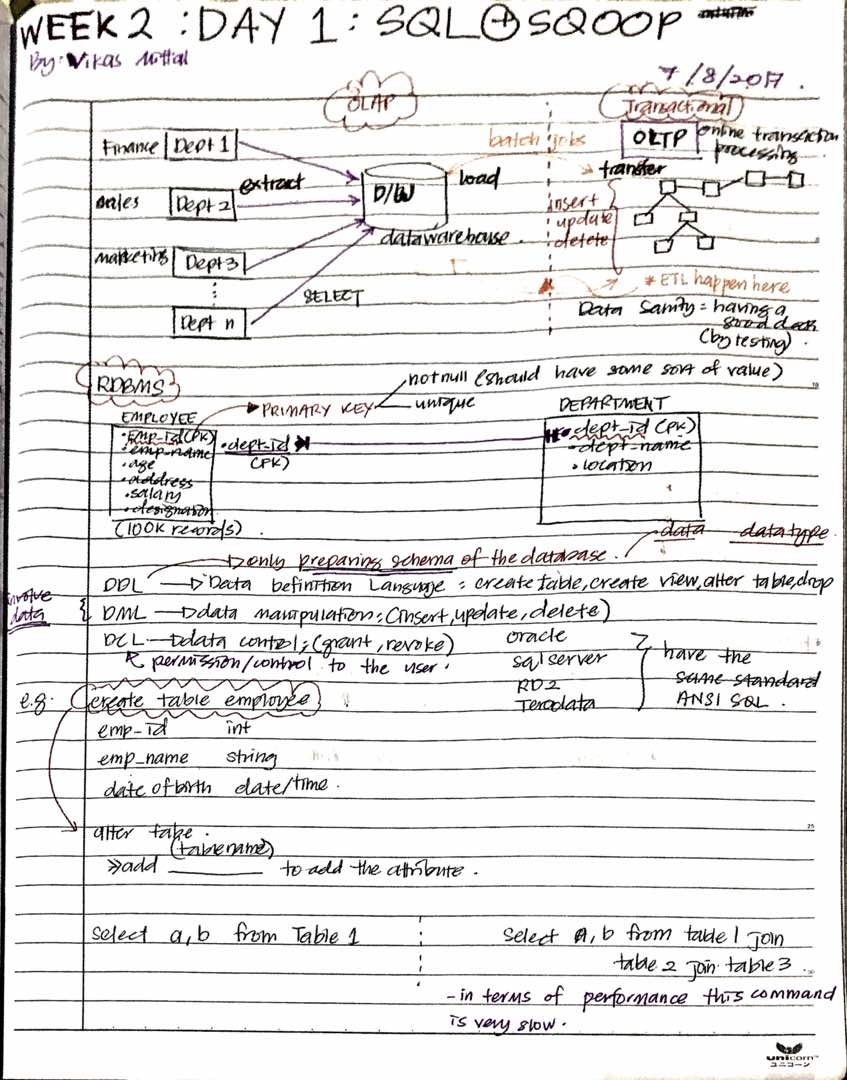 WEEK 2 : DAY 1 : SQL + SQOOP
By: Vikas Mittal
7/8/2017.
OLAP
Transactional
Finance Dept 1
batch jobs
OLTP online transaction
processing
extract
D/W
load
transfer
sales Dept 2
insert
update
delete
datawarehouse.
marketing Dept 3
SELECT
* ETL happen here
Dept n
Data Sanity = having a
good data
(by testing).
RDBMS
not null (should have some sort of value)
PRIMARY KEY
unique
EMPLOYEE
DEPARTMENT
• Emp-id (PK)
• emp-name
• age
• address
• salary
• designation
• dept-id
(PK)
• dept-id (PK)
• dept-name
• location
(100K records).
data datatype.
only preparing schema of the database.
DDL Data Definition Language : create table, create view, alter table, drop
involve
data
DML data manipulation : (insert, update, delete)
DCL data control : (grant, revoke)
permission/control to the user.
oracle
sql server
RD2
Teradata
have the
same standard
ANSI SQL.
e.g. create table employee
emp-id int
emp_name string
date of birth date/time.
alter take.
(tablename)
>>add ________ to add the attribute.
select a,b from Table 1
select A,b from table 1 join
table 2 join table 3.
- in terms of performance this command
is very slow.
unicorn
ユニコーン